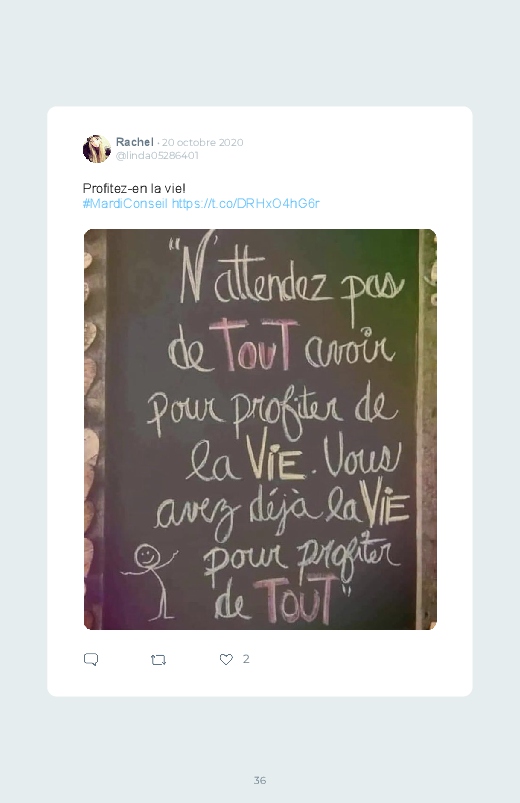 Rachel · 20 octobre 2020
@linda05286401
Profitez-en la vie!
#MardiConseil https://t.co/DRHxO4hG6r
"N'attendez pas
de TOUT avoir
pour profiter de
la ViE. Vous
avez déjà la ViE
pour profiter
de TOUT"
2
36